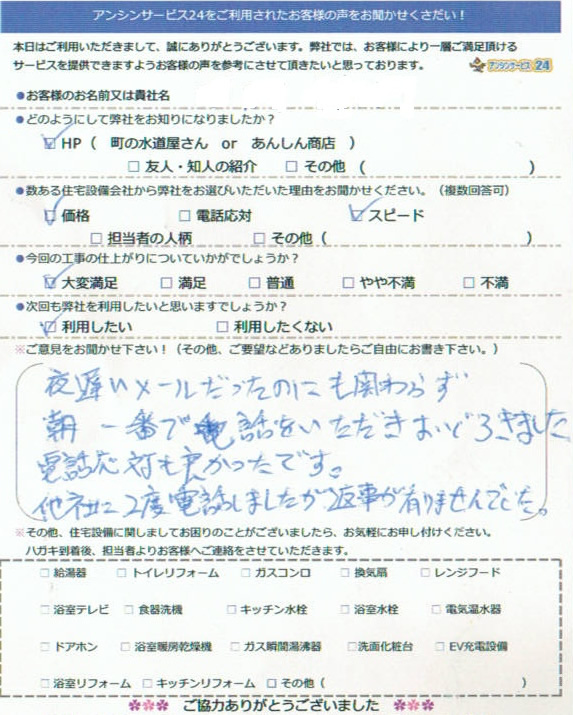 アンシンサービス24をご利用されたお客様の声をお聞かせください！
本日はご利用いただきまして、誠にありがとうございます。弊社では、お客様により一層ご満足頂ける
サービスを提供できますようお客様の声を参考にさせて頂きたいと思っております。 アンシンサービス24
●お客様のお名前又は貴社名
●どのようにして弊社をお知りになりましたか？
☑HP（ 町の水道屋さん or あんしん商店 ）
□友人・知人の紹介 □その他（ ）
●数ある住宅設備会社から弊社をお選びいただいた理由をお聞かせください。（複数回答可）
☑価格 □電話応対 ☑スピード
□担当者の人柄 □その他（ ）
●今回の工事の仕上がりについていかがでしょうか？
☑大変満足 □満足 □普通 □やや不満 □不満
●次回も弊社を利用したいと思いますでしょうか？
☑利用したい □利用したくない
※ご意見をお聞かせ下さい！（その他、ご要望などありましたらご自由にお書き下さい。）
夜遅いメールだったのにも関わらず
朝一番で電話をいただきおどろきました
電話応対も良かったです。
他社に2度電話しましたが返事が有りませんでした。
※その他、住宅設備に関しましてお困りのことがございましたら、お気軽にお申し付けください。
ハガキ到着後、担当者よりお客様へご連絡をさせていただきます。
□給湯器 □トイレリフォーム □ガスコンロ □換気扇 □レンジフード
□浴室テレビ □食器洗機 □キッチン水栓 □浴室水栓 □電気温水器
□ドアホン □浴室暖房乾燥機 □ガス瞬間湯沸器 □洗面化粧台 □EV充電設備
□浴室リフォーム □キッチンリフォーム □その他（ ）
ご協力ありがとうございました